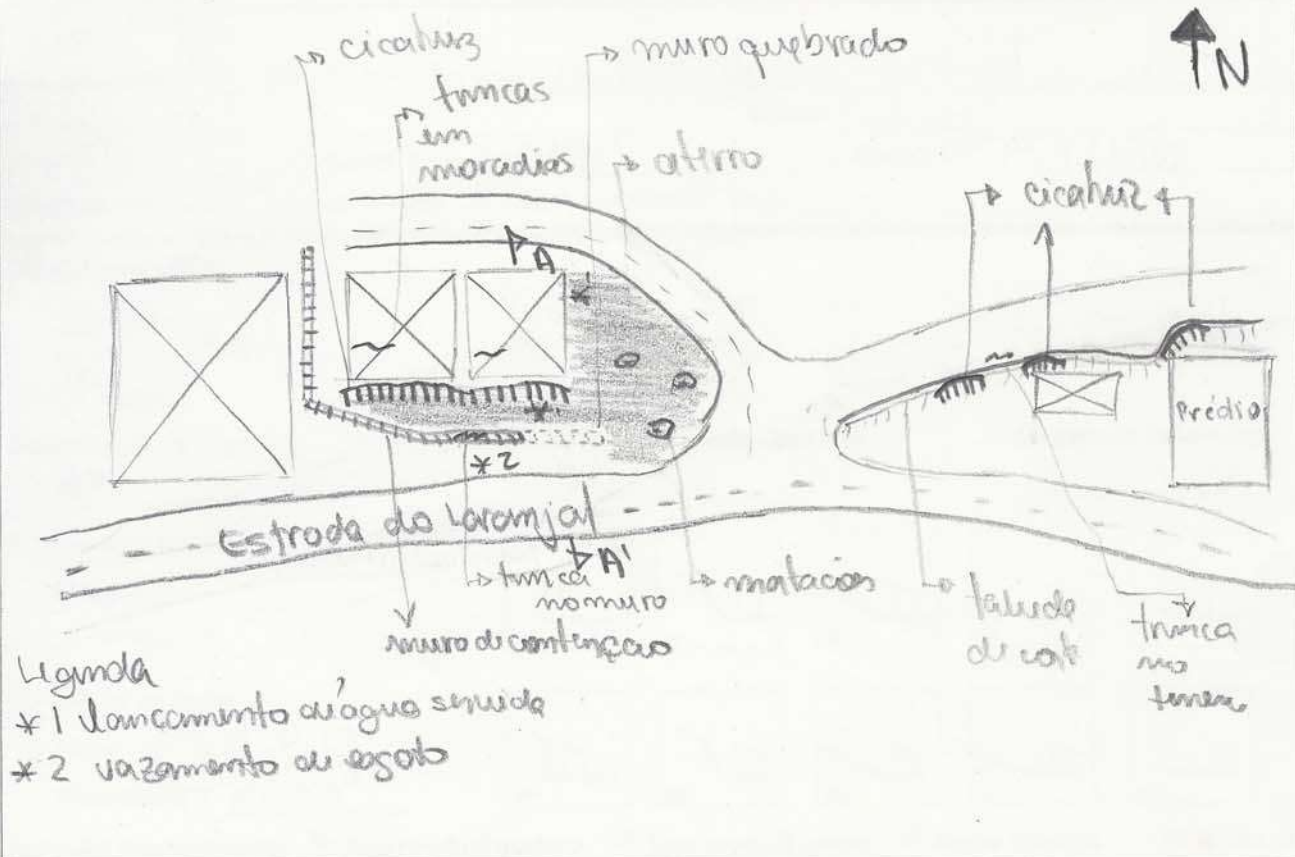 cicatriz
muro quebrado
N
trincas
em
moradias
aterro
cicatriz
A
*1
*1
*2
Prédio
Estrada do Laranjal
A'
trinca
no muro
matacões
muro de contenção
talude
de corte
trinca
no
terreno
Legenda
* 1 lançamento de água servida
* 2 vazamento de esgoto